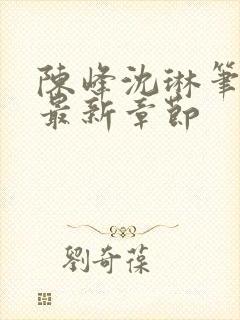 陳峰沈琳筆
最新章節
劉奇葆